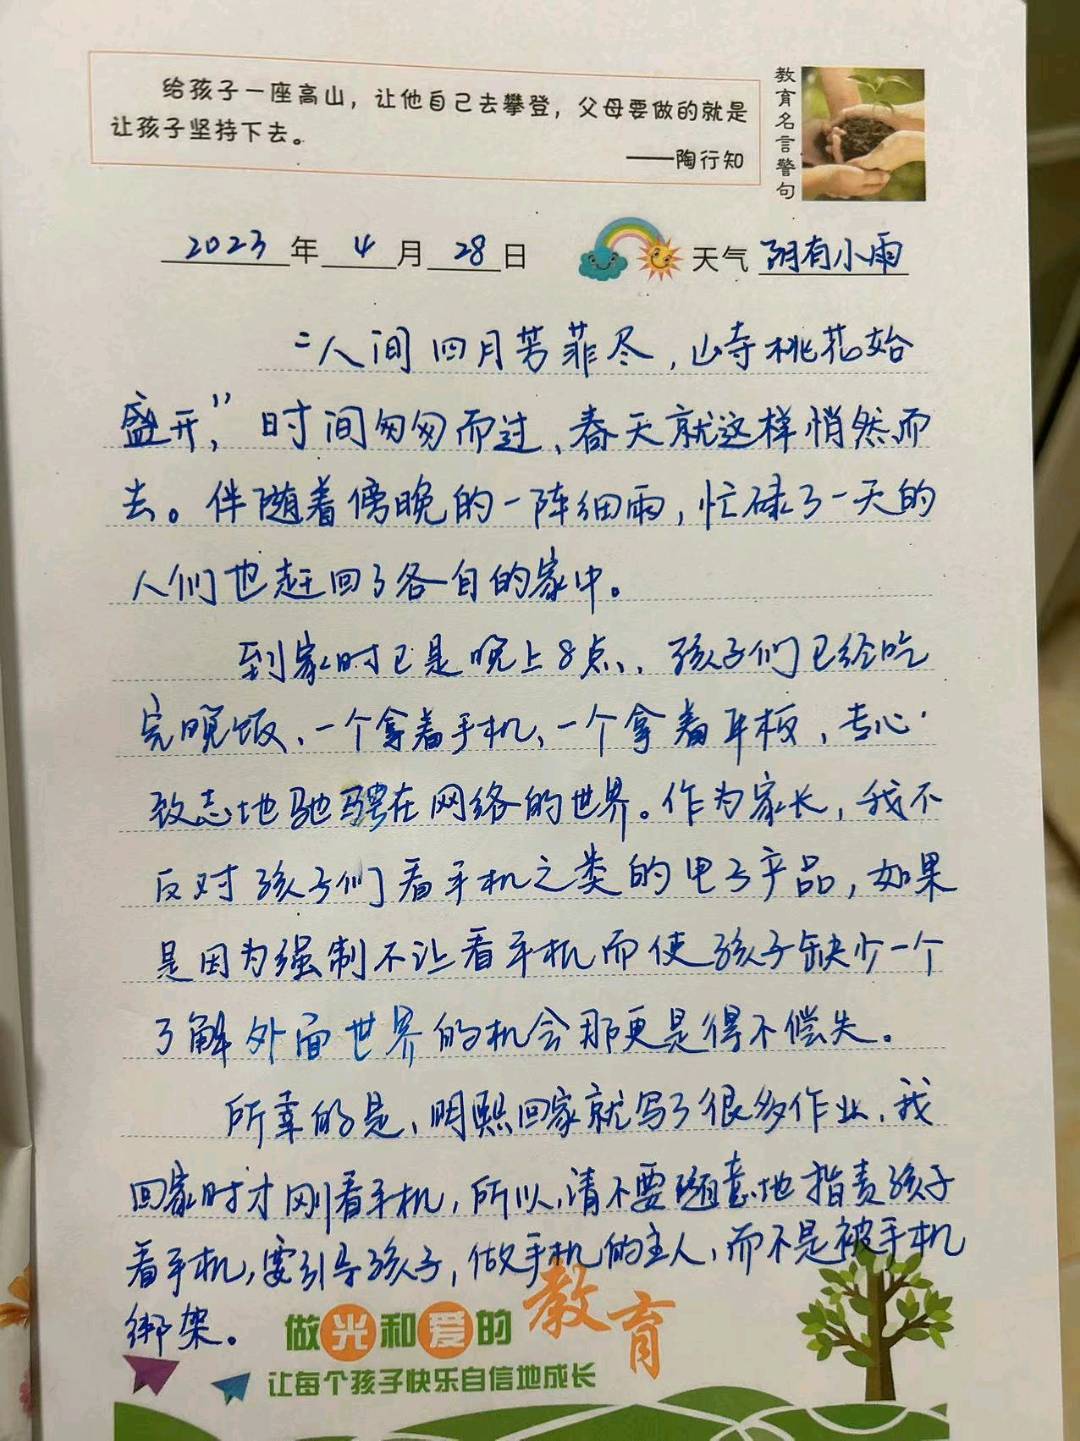 给孩子一座高山，让他自己去攀登，父母要做的就是
让孩子坚持下去。
——陶行知
教育名言警句
2023年 4月28日 天气 阴有小雨
“人间四月芳菲尽，山寺桃花始
盛开，”时间匆匆而过、春天就这样悄然而
去。伴随着傍晚的一阵细雨，忙碌了一天的
人们也赶回了各自的家中。
到家时已是晚上8点、孩子们已经吃
完晚饭、一个拿着手机、一个拿着平板、专心
致志地驰骋在网络的世界。作为家长，我不
反对孩子们看手机之类的电子产品，如果
是因为强制不让看手机而使孩子缺少一个
了解外面世界的机会那更是得不偿失。
所幸的是、明熙回家就写了很多作业、我
回家时才刚看手机，所以，请不要随意地指责孩子
看手机，要引导孩子，做手机的主人、而不是被手机
绑架。
做光和爱的教育
让每个孩子快乐自信地成长